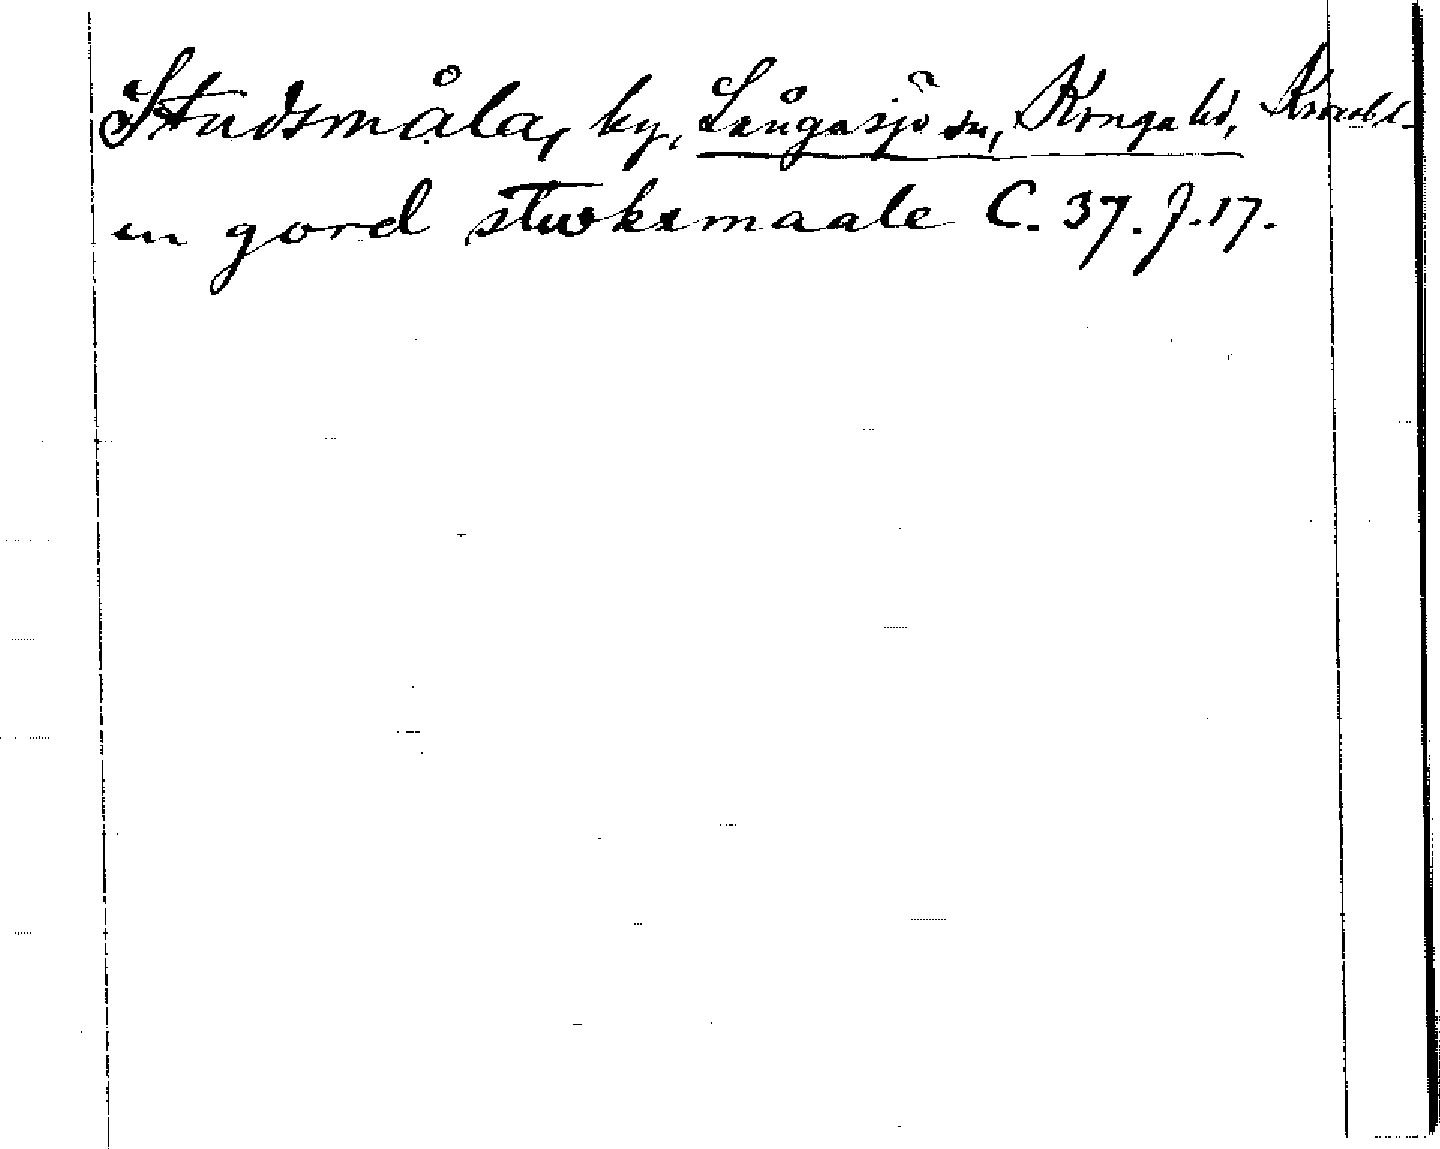 Studsmåla, by, Långasjö sn, Konga hd, Kronobl.
en gord stwoksmaale C. 37. J. 17.